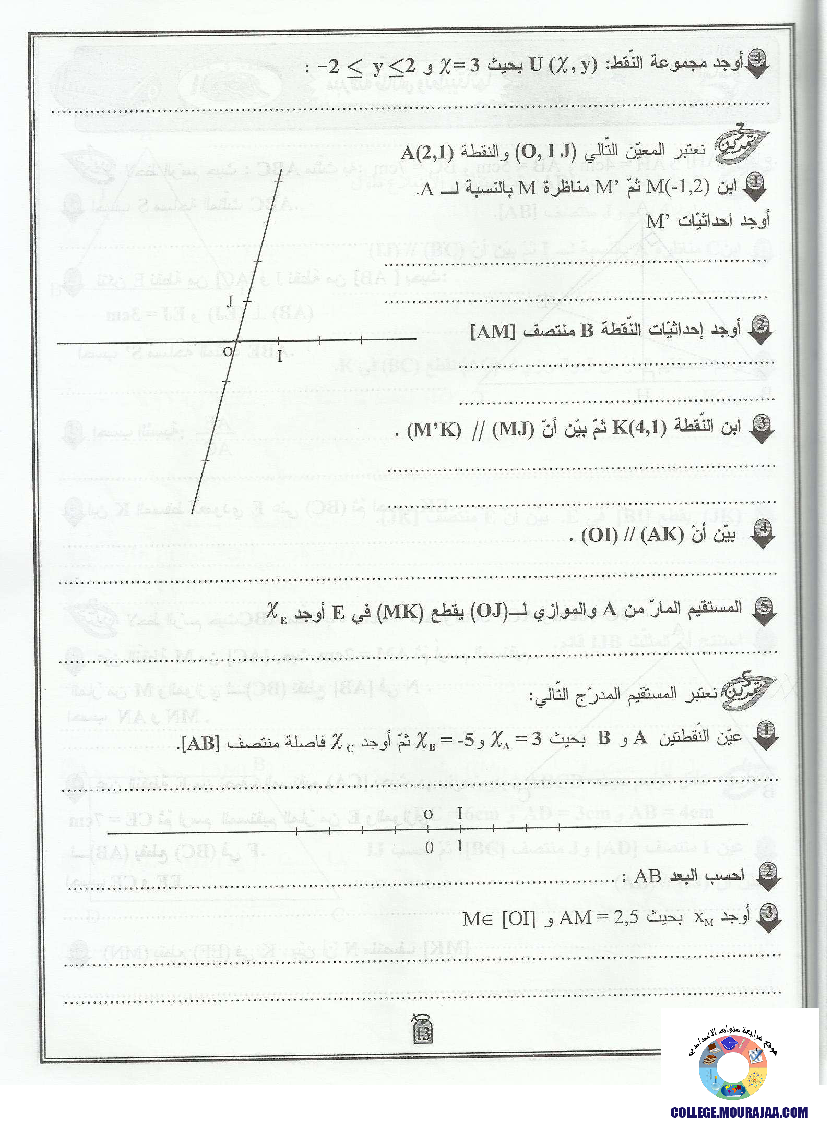 4 أوجد مجموعة النّقط: U (χ, y) بحيث χ= 3 و -2 ≤ y ≤2 :
تمرين 2 نعتبر المعيّن التّالي (O, I J) والنقطة A(2,1)
1 ابن M(-1,2) ثمّ M’ مناظرة M بالنسبة لـ A.
أوجد احداثيّات M’
J
O
I
2 أوجد إحداثيّات النّقطة B منتصف [AM]
3 ابن النّقطة K(4,1) ثمّ بيّن أنّ (MJ) // (M’K) .
4 بيّن أنّ (AK) // (OI) .
5 المستقيم المارّ من A والموازي لـ(OJ) يقطع (MK) في E أوجد χE
تمرين نعتبر المستقيم المدرّج التّالي:
1 عيّن النّقطتين A و B بحيث χA = 3 و χB = -5 ثمّ أوجد χC فاصلة منتصف [AB].
O I
0 1
2 احسب البعد AB :
3 أوجد xM بحيث AM = 2,5 و M∈ [OI]
13
موقع مراجعة
COLLEGE.MOURAJAA.COM